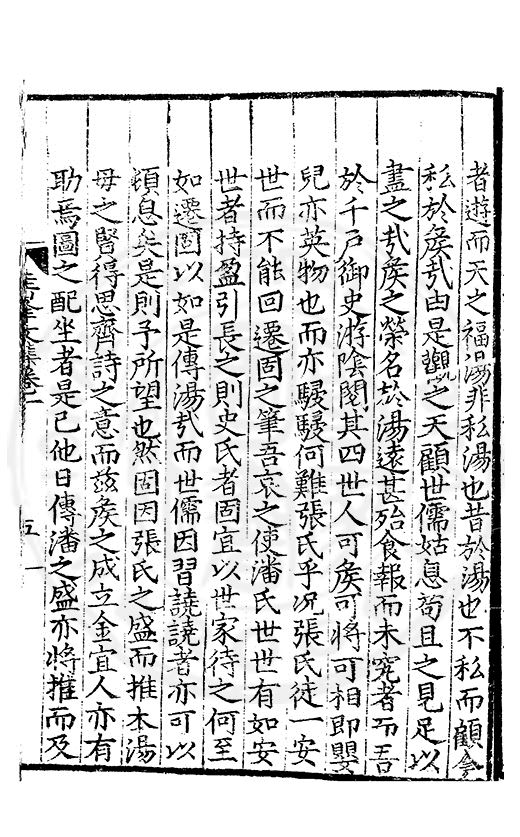 者遊而天之福湯非私湯也昔於湯也不私而顧今
私於矦㢤由是觀之天顧世儒姑息苟且之見足以
盡之㢤矦之榮名於湯遠甚殆食報而未究者而吾
於千戸御史游陰閱其四世人可矦可將可相即嬰
兒亦英物也而亦駸駸何難張氏乎况張氏徒一安
世而不能回遷固之筆吾哀之使潘氏世世有如安
世者持盈引長之則史氏者固宜以世家待之何至
如遷固以如是傳湯㢤而世儒因習譊譊者亦可以
頓息矣是則予所望也然固因張氏之盛而推本湯
母之賢得思齊詩之意而兹矦之成立金宜人亦有
助焉圖之配坐者是已他日傳潘之盛亦將推而及
文集卷二
五